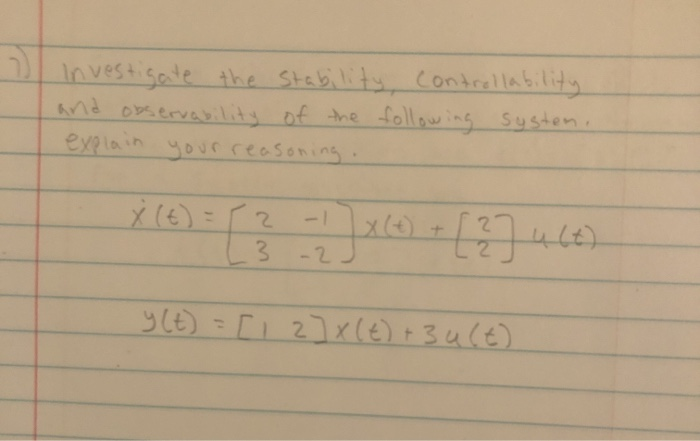 7) Investigate the stability, controllability
and observability of the following system.
explain your reasoning.
ẋ(t) = [2 -1; 3 -2] x(t) + [2; 2] u(t)
y(t) = [1 2] x(t) + 3u(t)